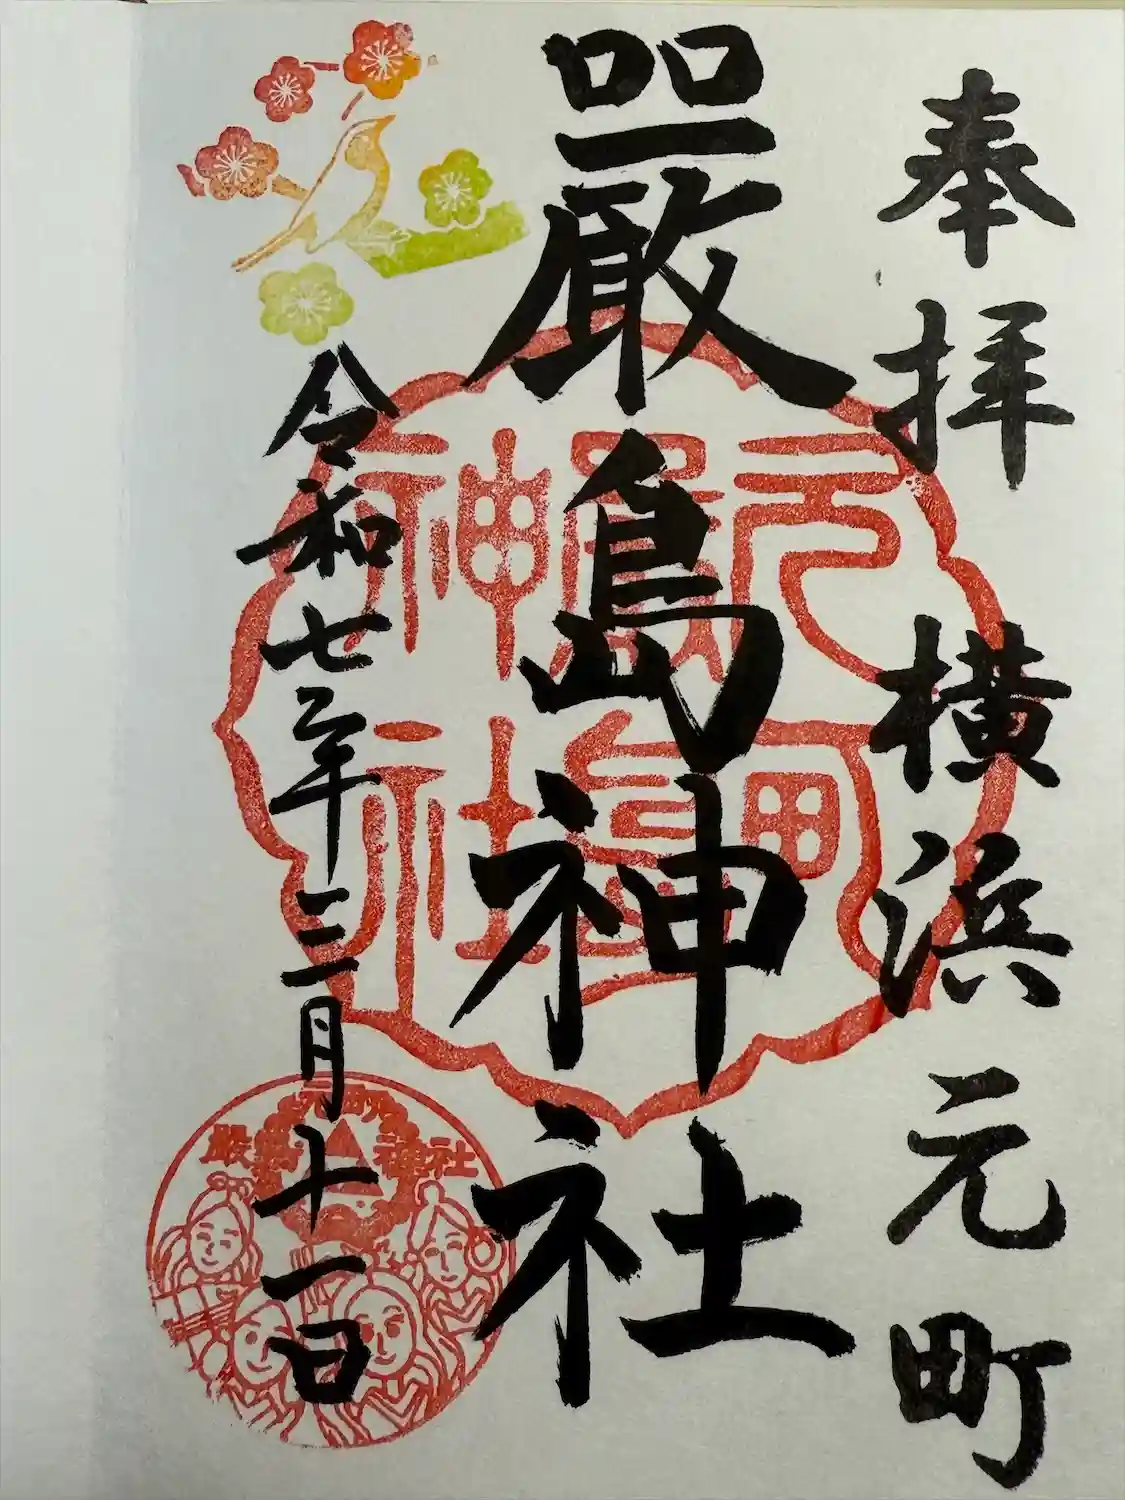 奉拝　横浜元町
嚴島神社
令和七年三月十一日
元町
嚴島
神社
元町
嚴島神社